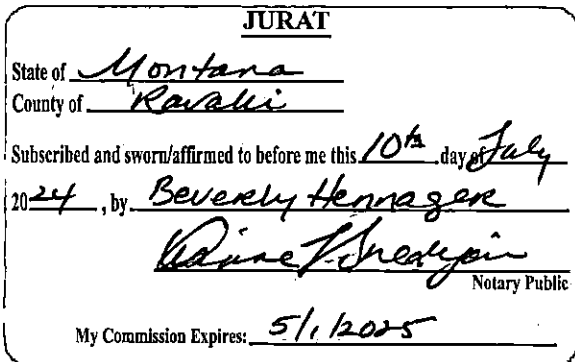 JURAT
State of Montana
County of Ravalli
Subscribed and sworn/affirmed to before me this 10th day of July
2024, by Beverly Hennager
Notary Public
My Commission Expires: 5/1/2025